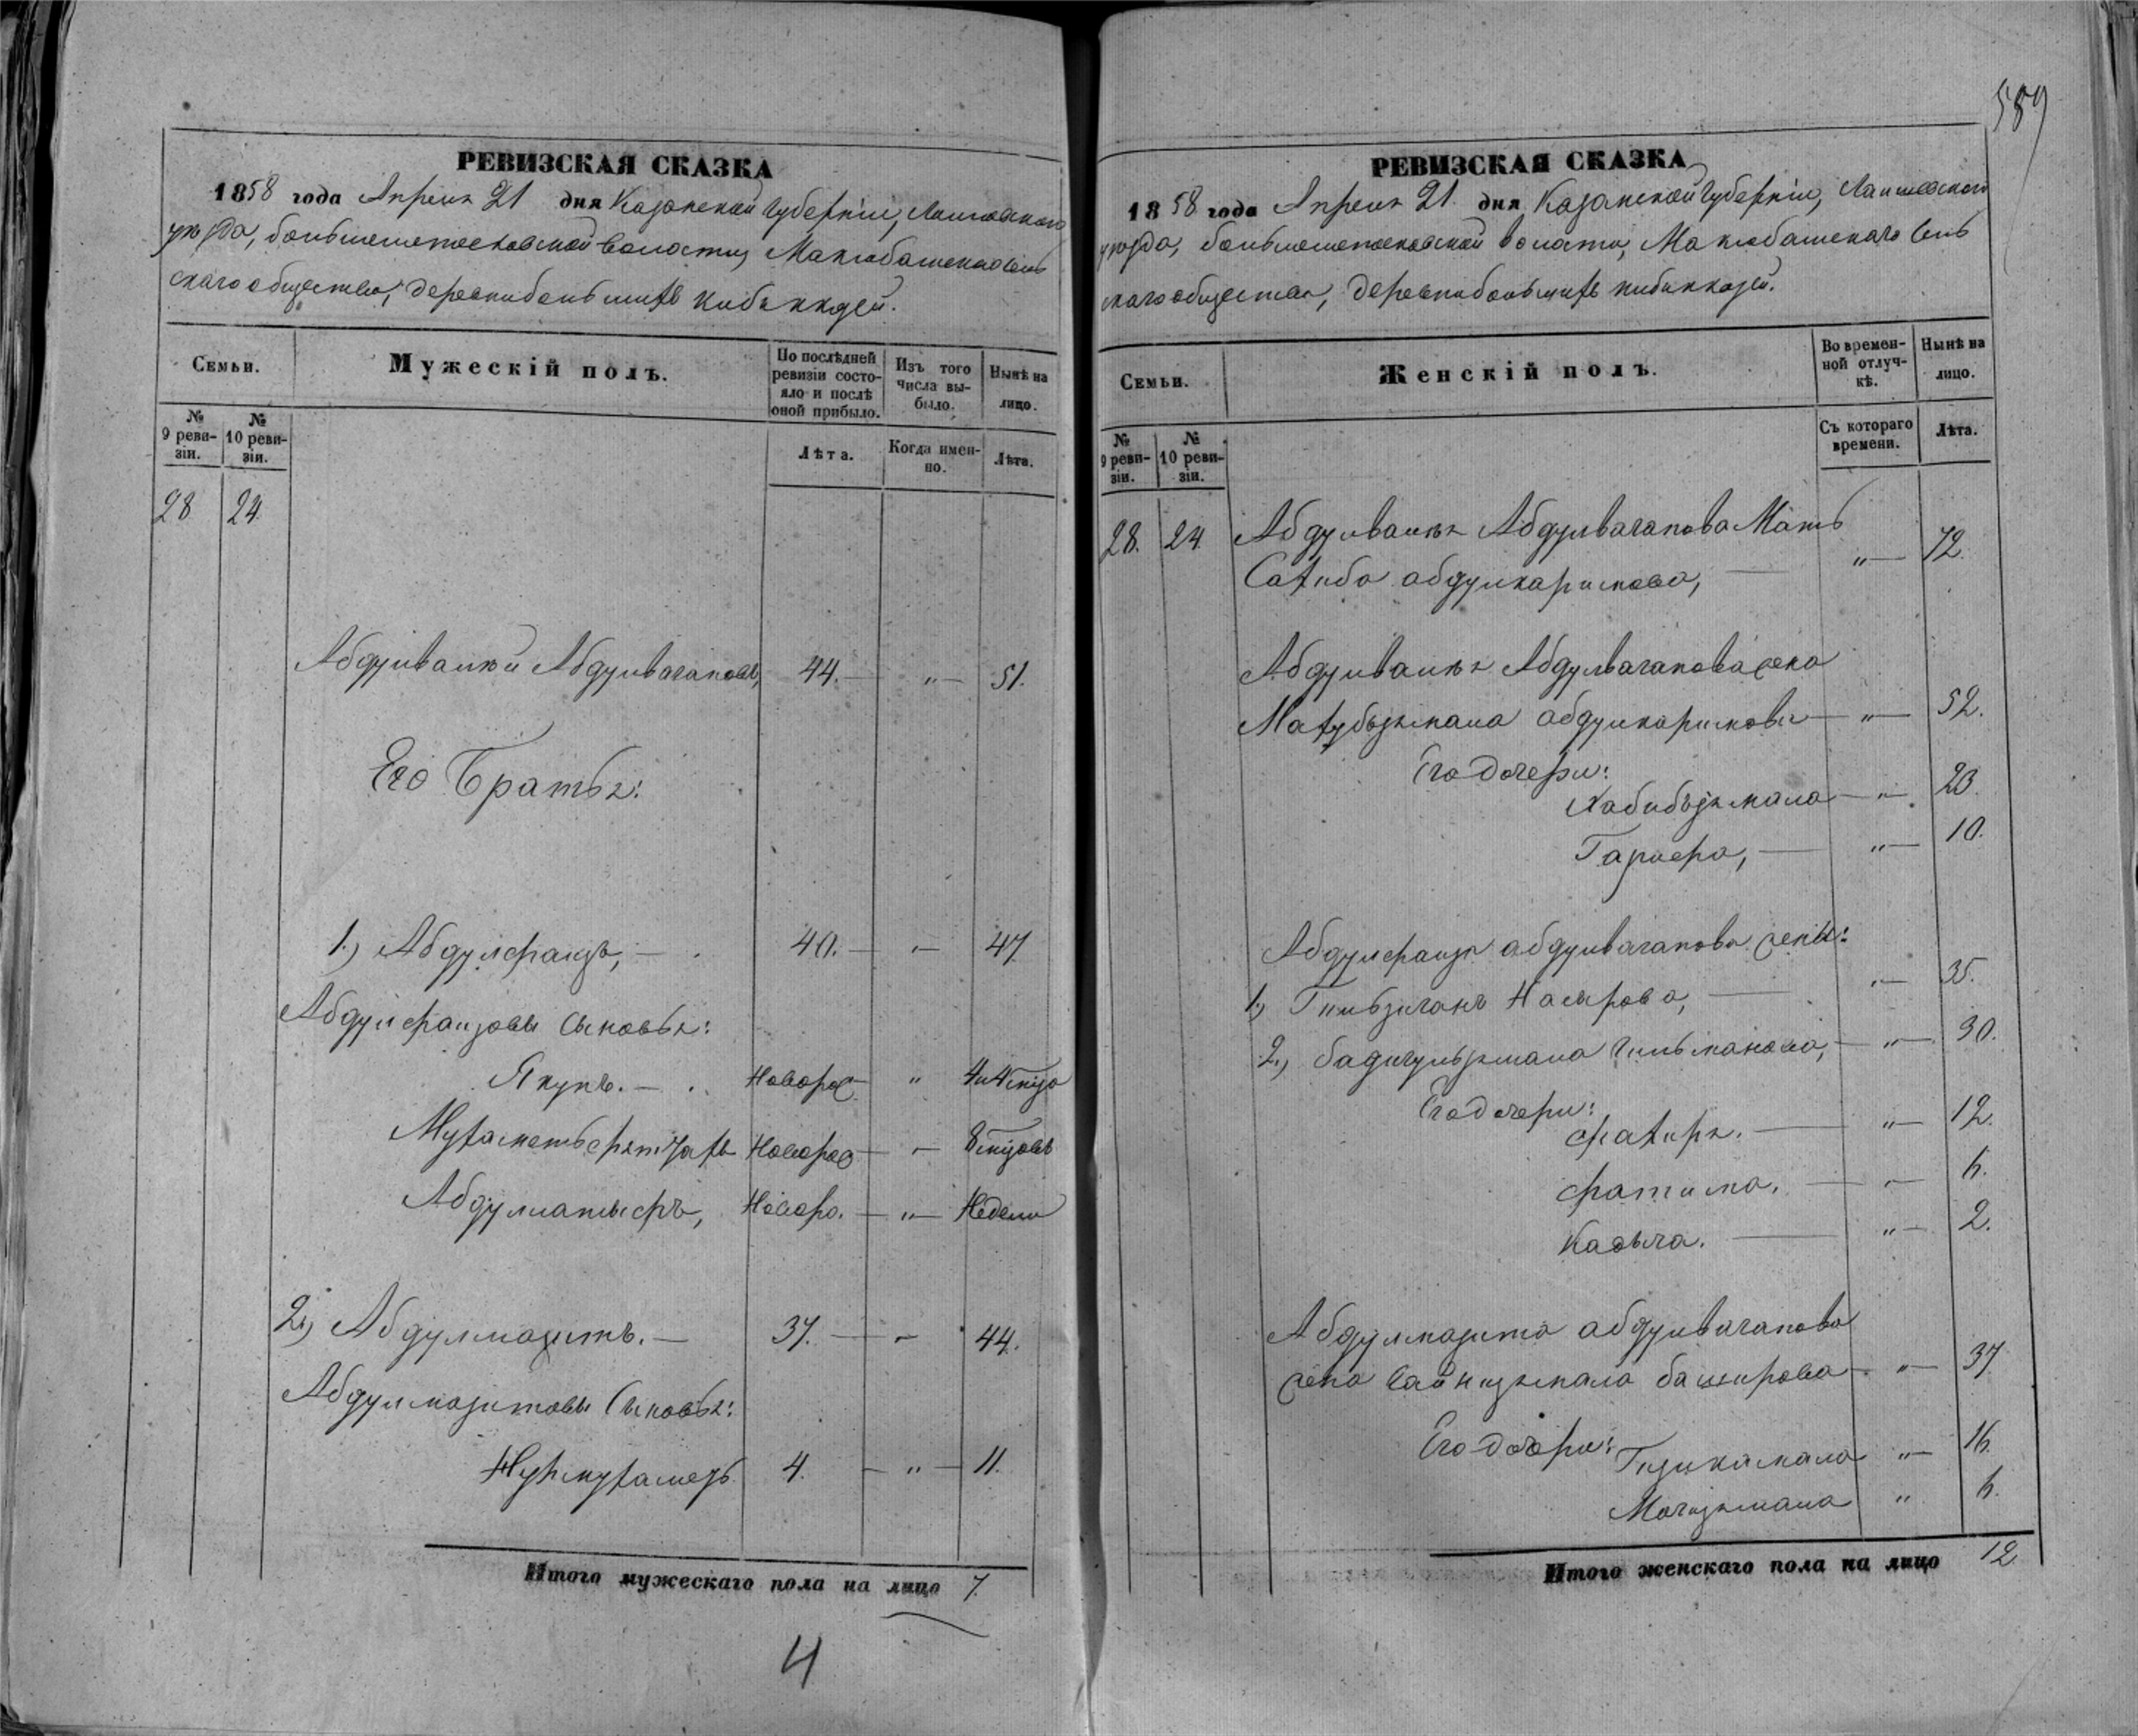 589
РЕВИЗСКАЯ СКАЗКА
1858 года Апреля 21 дня Казанской Губернiи, Лаишевскаго
уѣзда, большеметесковской волости, Максабашскаго сель
скаго общества, деревни большихъ кибяккозей.
Семьи.
Мужескiй полъ.
По послѣдней ревизiи состояло и послѣ оной прибыло.
Изъ того числа выбыло.
Нынѣ на лицо.
№ 9 ревизiи.
№ 10 ревизiи.
Лѣта.
Когда именно.
Лѣта.
28 24.
Абдулвалей Абдулвагаповъ, 44. — „ — 51.
Его Братья:
1.) Абдулфаизъ, — 40. — „ — 47
Абдулфаизовы Сыновья:
Якупъ. — Новорож „ 4 и
Мухаметьфатзахъ Новорож — „ —
Абдуллатыфъ, Новоро. — „ — Недели
2.) Абдулмазитъ. — 37. — „ — 44.
Абдулмазитовы Сыновья:
Нурмухамедъ 4. — „ — 11.
Итого мужескаго пола на лицо 7.
4
РЕВИЗСКАЯ СКАЗКА
1858 года Апреля 21. дня Казанской Губернiи, Лаишевскаго
уѣзда, большеметесковской волости, Максабашскаго Сель
скаго общества, деревни большихъ кибяккозей.
Семьи.
Женскiй полъ.
Во временной отлучкѣ.
Нынѣ на лицо.
№ 9 ревизiи.
№ 10 ревизiи.
Съ котораго времени.
Лѣта.
28. 24. Абдулвалея Абдулвагапова Мать
Сахиба абдулкаримова, — „ — 72.
Абдулвалея Абдулвагапова жена
Махубьзямала абдулкаримова — „ — 52.
Его дочери:
Хабибьзямала — „ — 20.
Гарифа, — „ — 10.
Абдулфаиза абдулвагапова жены:
1.) Гильзиганъ Насырова, — „ — 35.
2.) бадигульзямала Гильманова, — „ — 30.
Его дочери:
Фахиря. — „ — 12.
Фатима. — „ — 6.
Кадыча. — „ — 2.
Абдулмазита абдулвагапова
жена Сайнизямала баширова — „ — 37
Его дочери: Гизикамала „ — 16.
Магизямала „ 6.
Итого женскаго пола на лицо 12